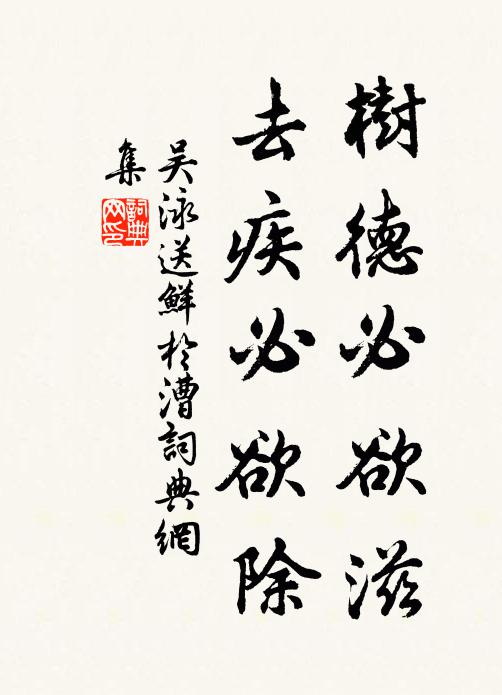 樹德必欲滋
去疾必欲除
吴泳送鮮於漕詞典網
集
詞典
网印